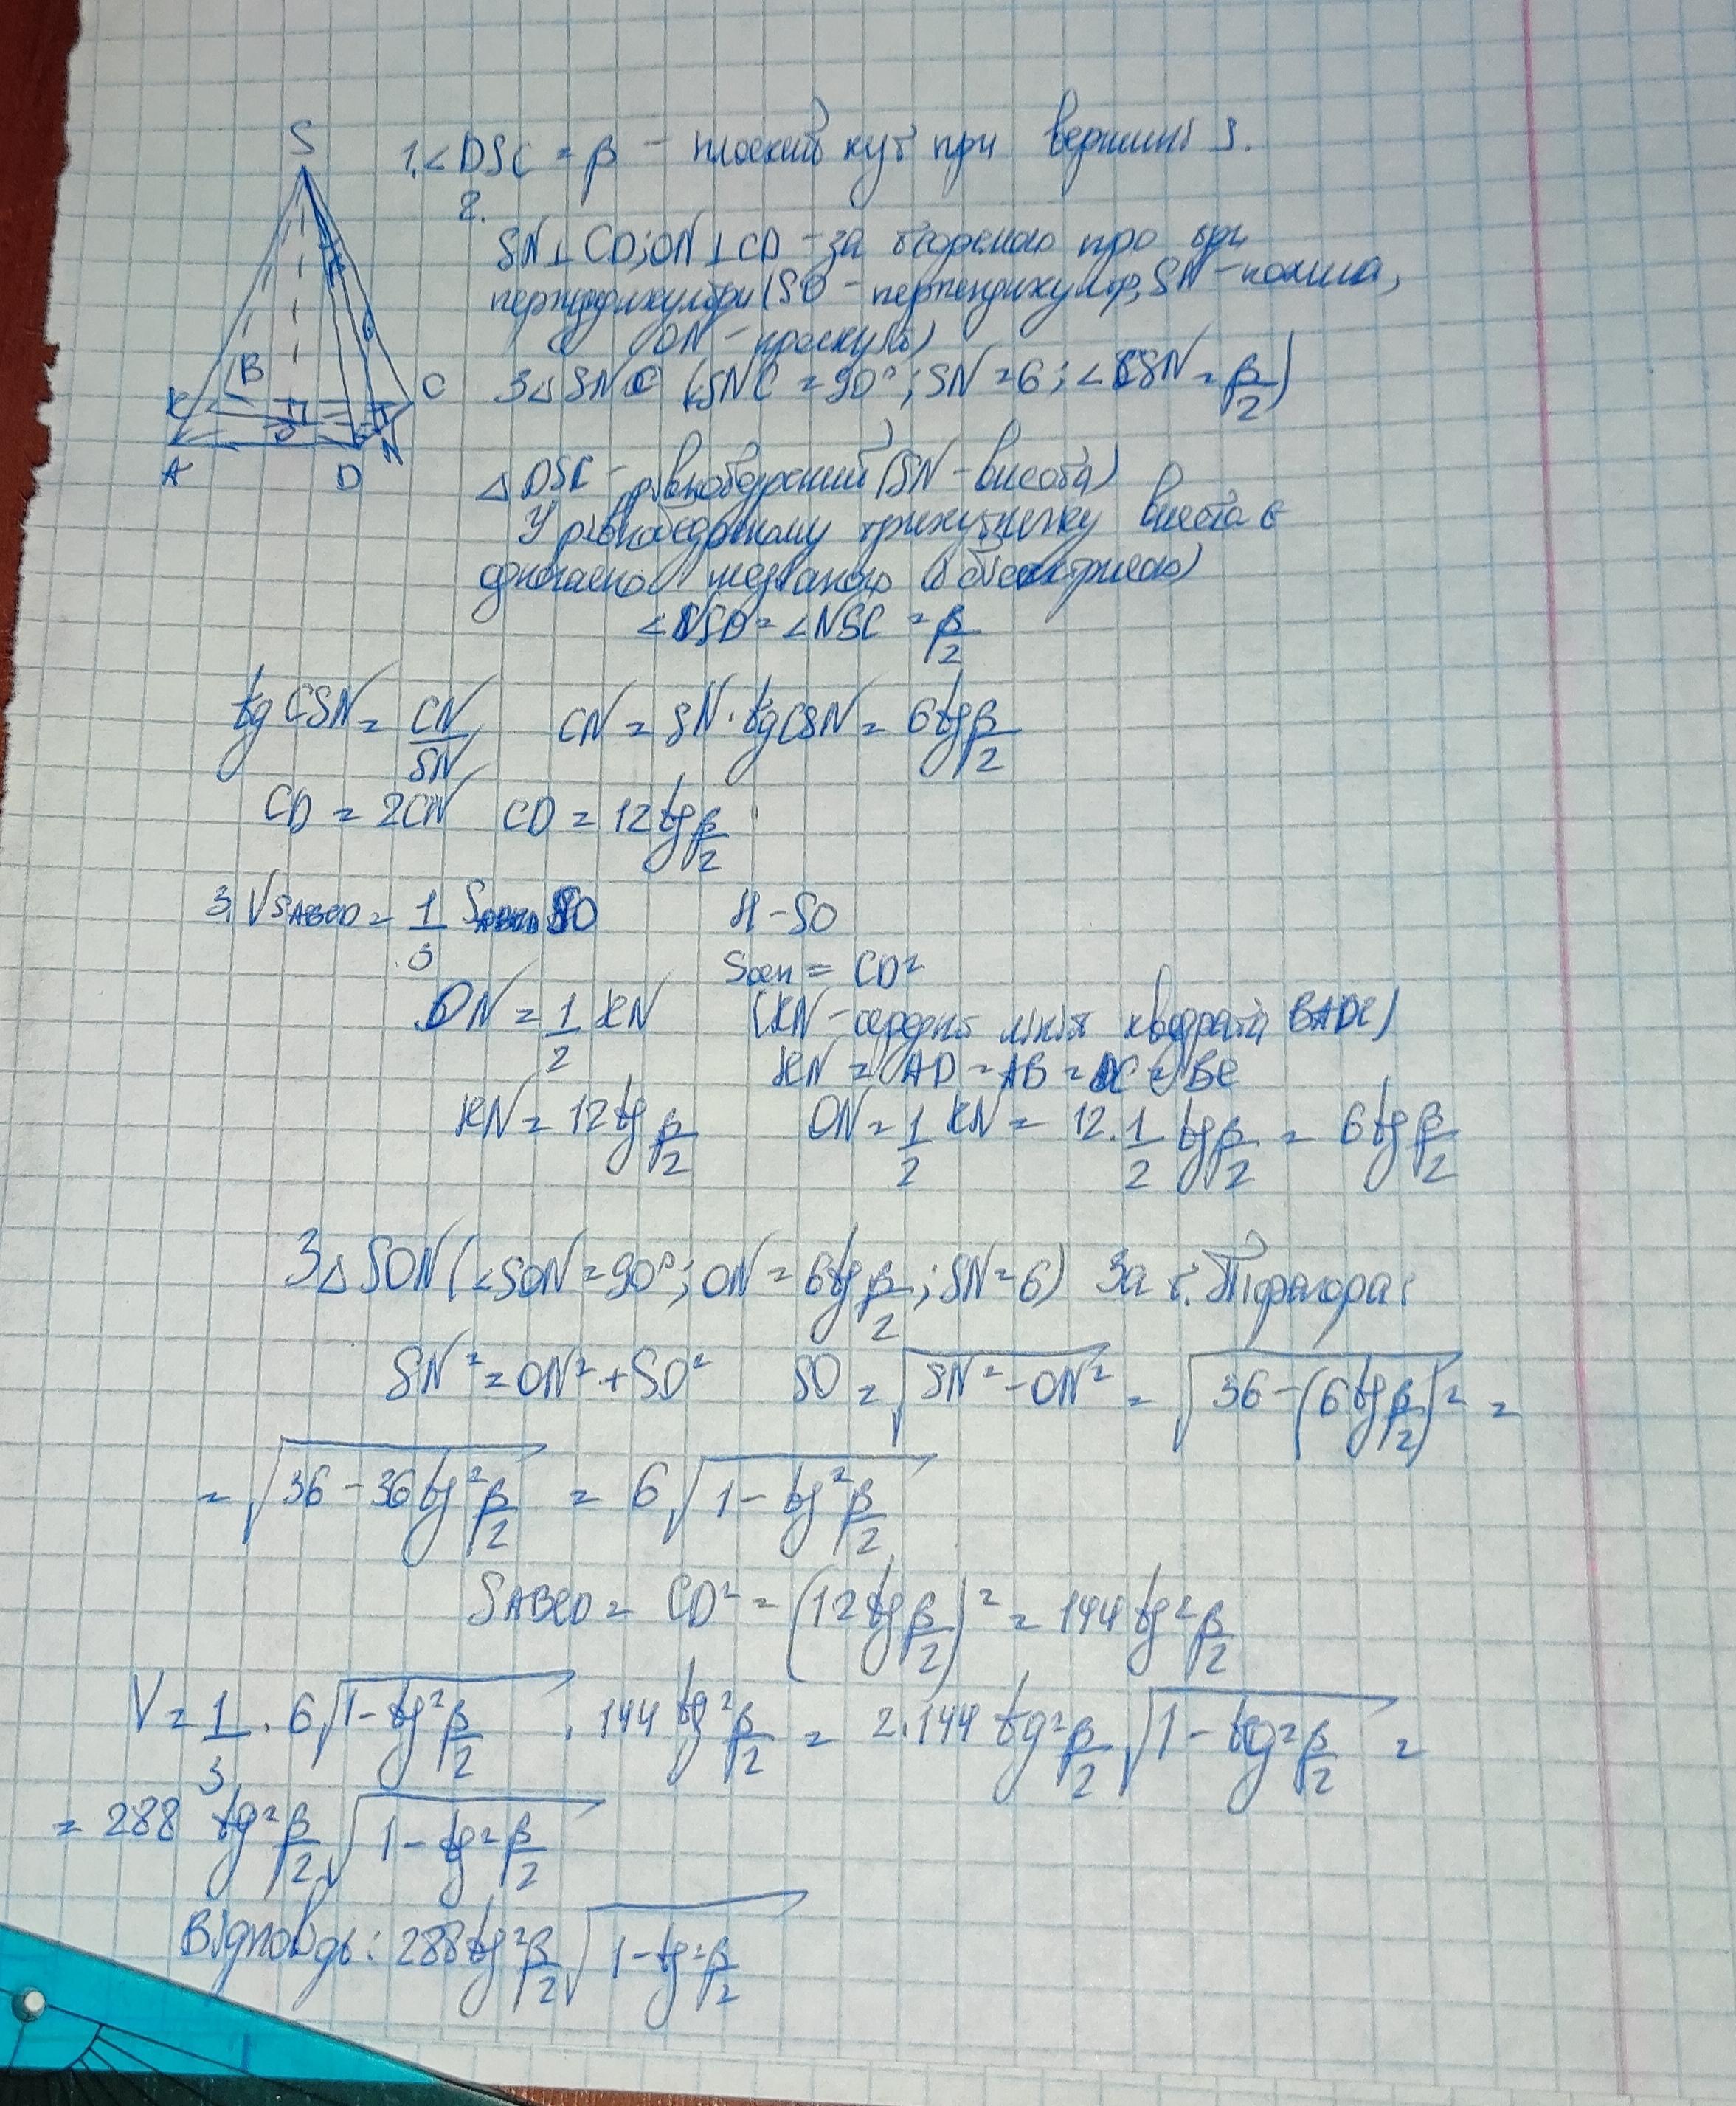 S
1. ∠DSC = β – плоский кут при вершині S.
2.
SN⊥CD; ON⊥CD – за теоремою про три
перпендикуляри (SO – перпендикуляр, SN – похила,
ON – проекція)
K B O N C
A D
З△SNC (SNC = 90°; SN = 6; ∠CSN = β/2)
△DSC – рівнобедрений (SN – висота)
У рівнобедреному трикутнику висота є
одночасно медіаною (і бісектрисою)
∠NSD = ∠NSC = β/2
tg CSN = CN/SN CN = SN · tg CSN = 6tg β/2
CD = 2CN CD = 12tg β/2
3. V SABCD = 1/3 SABCD SO H – SO
Sосн = CD²
ON = 1/2 KN (KN – середня лінія квадрата BADC)
KN = AD = AB = DC = BC
KN = 12tg β/2 ON = 1/2 KN = 12 · 1/2 tg β/2 = 6tg β/2
З△SON (∠SON = 90°; ON = 6tg β/2; SN = 6) За т. Піфагора:
SN² = ON² + SO² SO = √(SN² – ON²) = √(36 – (6tg β/2)²) =
= √(36 – 36tg² β/2) = 6√(1 – tg² β/2)
SABCD = CD² = (12tg β/2)² = 144tg² β/2
V = 1/3 · 6√(1 – tg² β/2) · 144tg² β/2 = 2·144tg² β/2 √(1 – tg² β/2) =
= 288 tg² β/2 √(1 – tg² β/2)
Відповідь: 288tg² β/2 √(1 – tg² β/2)